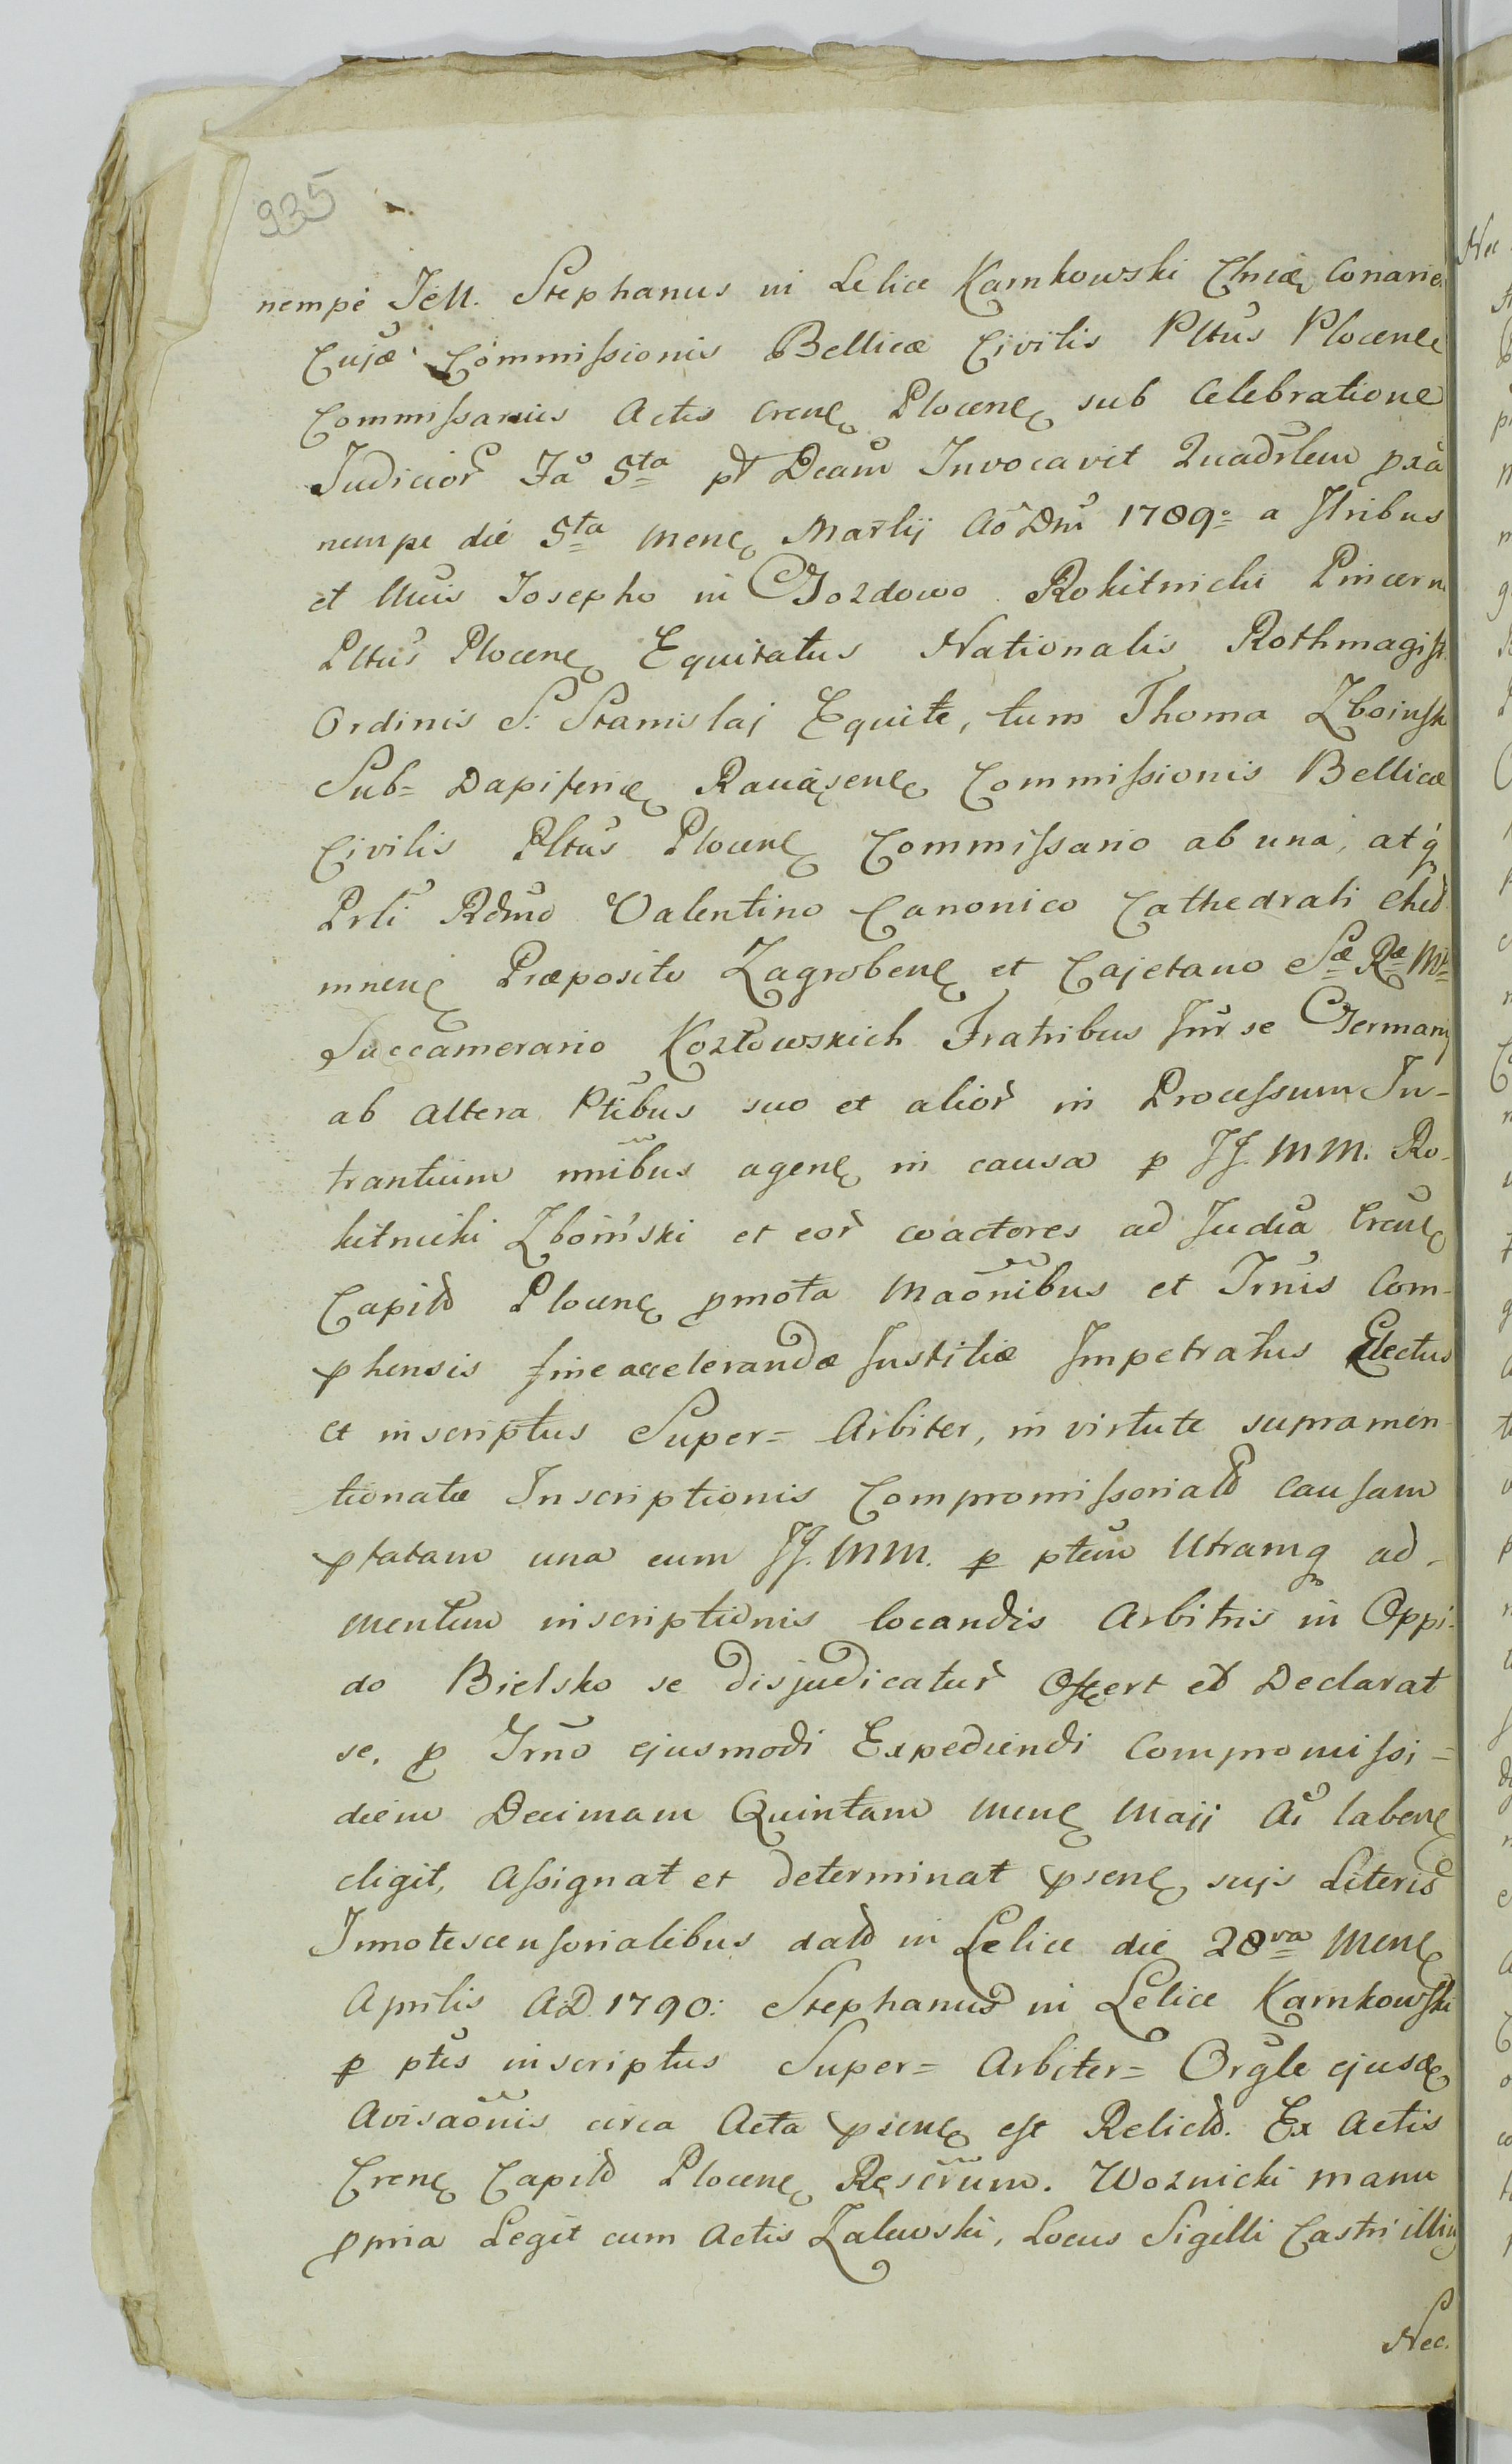 935
nempe JeM. Stephanus in Lelice Karnkowski
Commissionis Bellicæ Civilis Pltus Plocene
Commissarius Actis Crene Plocene sub Celebratione
Judicior Fa 5ta pt Dcam Invocavit Quadrlem pxa
nempe die 5ta mene Martij Ao Dni 1789o a Jltribus
et Muis Josepho in Gozdowo Rokitnicki Pincern
Pltus Plocene Equitatus Nationalis Rothmagist
Ordinis S: Stanislaj Equite, tum Thoma Zboinsk
Sub= Dapifero Ravasene Commissionis Bellicæ
Civilis Pltus Plocene Commissario ab una, atq
Prli Rdmo Valentino Canonico Cathedrali Cheł
mnene Præposito Zagrobene et Cajetano Sæ Ræ Mtis
Succamerario Kozłowskich Fratribus Intr se Germanis
ab altera Ptibus suo et alior in Processum In-
trantium nnibus agene in causa p JJ. MM. Ro-
kitnicki Zboiński et eor coactores ad Judia Crene
Capitd Plocene pmota Maonibus et Trnis Com-
phensis fine accelerandæ Justitiæ Impetratus Electus
et inscriptus Super= Arbiter, in virtute supramen-
tionatæ Inscriptionis Compromissoriald causam
pfatam una cum JJ. MM. p ptem Utramq ad-
mentem inscriptionis locandis Arbitris in Oppi-
do Bielsko se disjudicatur Offert et Declarat
se. p Trno ejusmodi Expediendi Compromissi=
diem Decimam Quintam mene Maji Ai labene
eligit, Assignat et determinat psene sujs Literis
Innotescensorialibus datd in Lelice die 28va mene
Aprilis AD 1790: Stephanus in Lelice Karnkowski
p ptes inscriptus Super= Arbiter= Orgle ejusde
Avisaonis circa Acta psene est Relictd. Ex Actis
Crene Capitd Plocene Rescrum. Woznicki manu
ppria Legit cum Actis Zalewski, Locus Sigilli Castri illius
Nec.